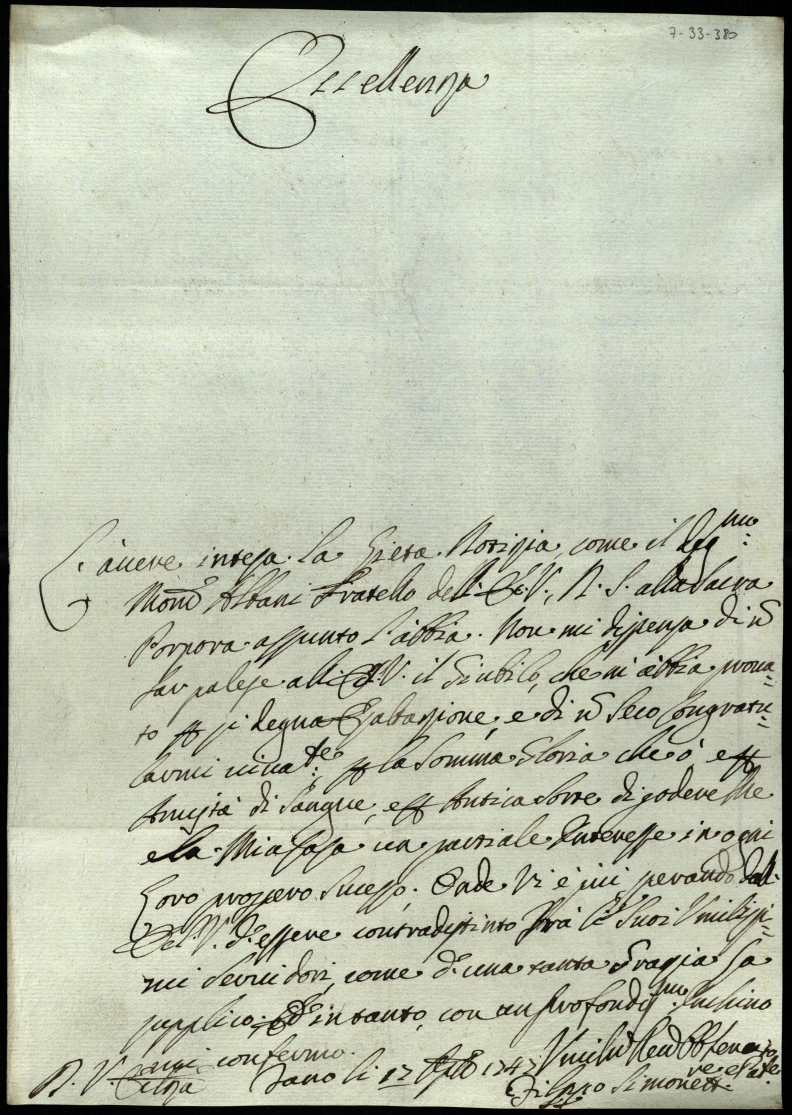 7-33-380
Eccellenza
L'avere intesa la Lieta Notizia, come il Deg:mo
Mons.r Albani Fratello dell'Ec: V., N. S. alla Sacra
Porpora assunto l'abbia. Non mi dispensa di n
far palese all'Ec: V. il Giubilo, che n'abbia prova=
to p si degna Esaltazione, e di n Seco congratu=
larmi viva:te p la Somma Gloria che ò, e p
Amistà di Sangue, e p Antica Sorte di godere Me
e la Mia Casa un parziale Interesse in ogni
Loro prospero Sucesso. Onde Vi è più sperando dall'
Ec: V. d'essere contradistinto frà li Suoi Umilissi=
mi Servidori, come d'una tanta Grazia La
supplico. Ed intanto, con un profondiss:mo Inchino
mi confermo.
D. V. Ecc.za Fano li 12 1747 Umil:o
Filippo Simonetti